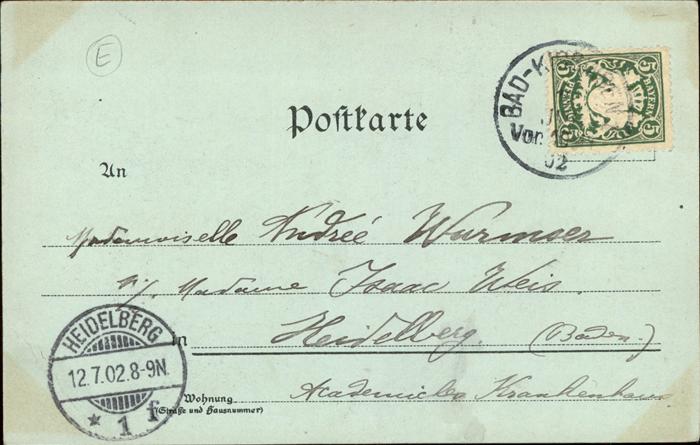 E
BAD-KISSINGEN
Vor.
02
5 5
BAYERN
PFENNIG
5 5
Postkarte
An
Mademoiselle Andrée Wurmser
p/ Madame Isaac Weis.
in Heidelberg. (Baden.)
Academisches Krankenhaus
Wohnung
(Straße und Hausnummer)
HEIDELBERG
12.7.02.8-9N.
* 1 f